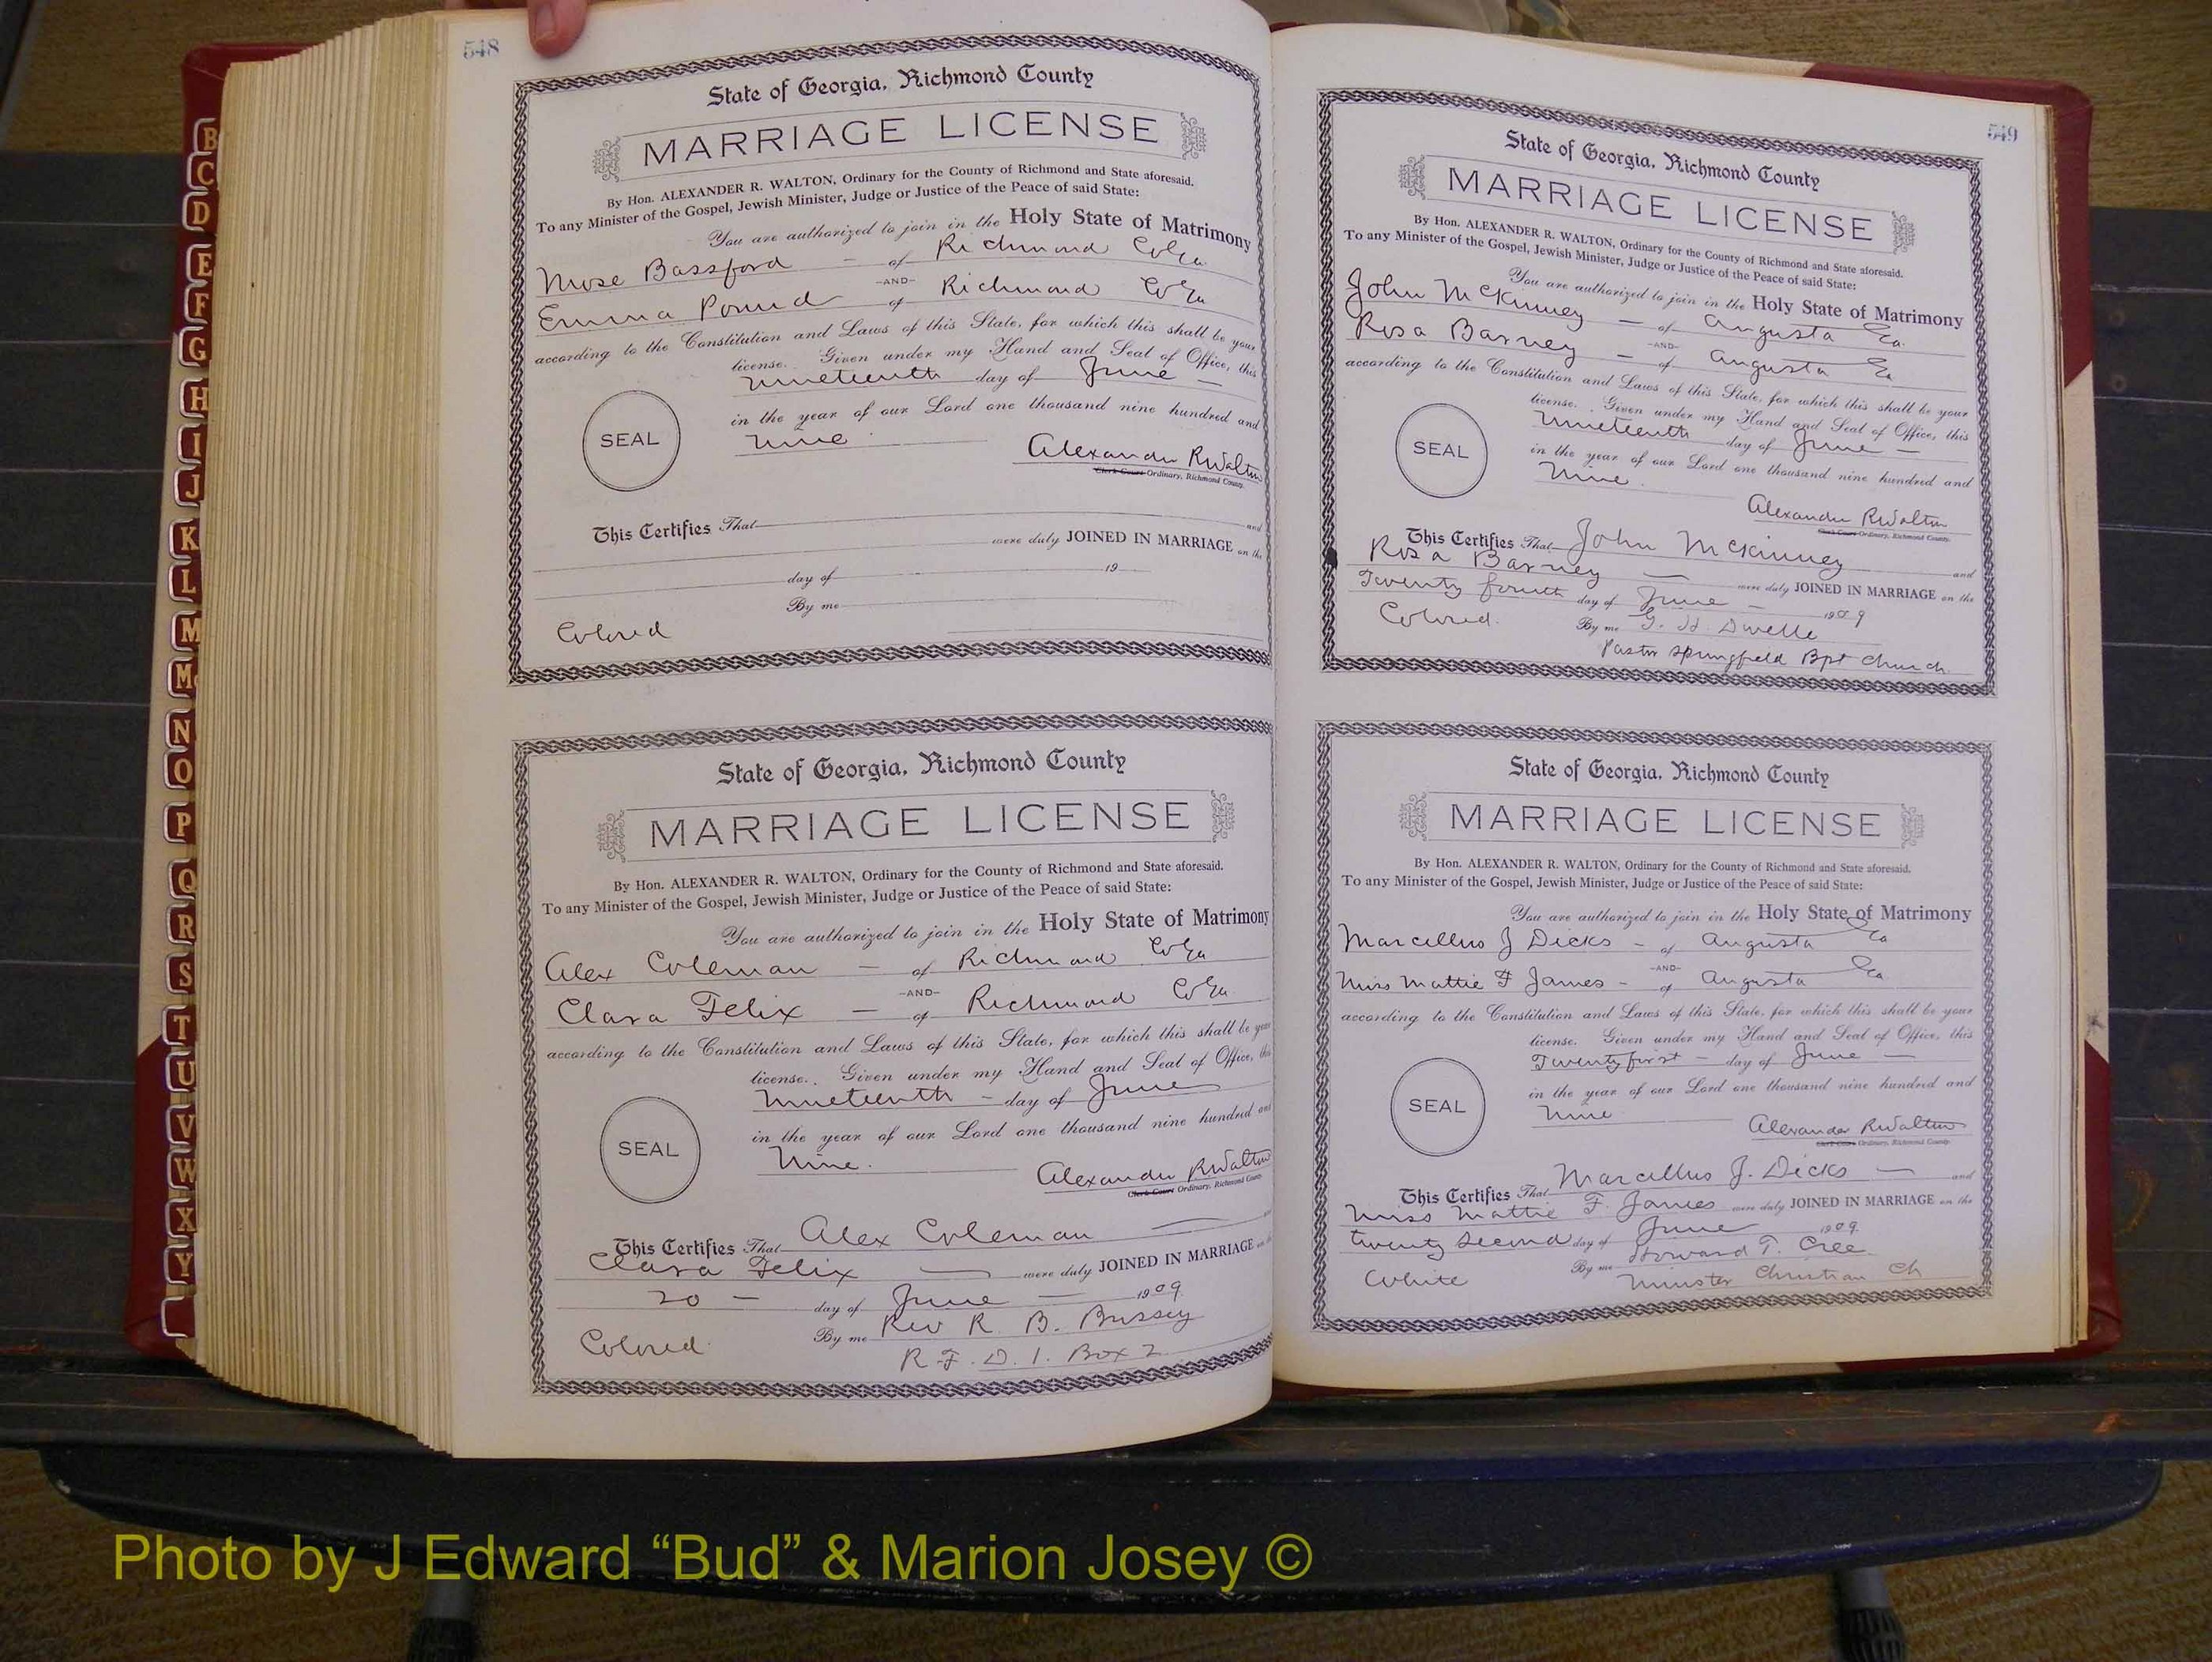 548
State of Georgia, Richmond County
MARRIAGE LICENSE
By Hon. ALEXANDER R. WALTON, Ordinary for the County of Richmond and State aforesaid.
To any Minister of the Gospel, Jewish Minister, Judge or Justice of the Peace of said State:
You are authorized to join in the Holy State of Matrimony
Mose Bassford - of Richmond Co Ga
-AND-
Emma Pound of Richmond Co Ga
according to the Constitution and Laws of this State, for which this shall be your
license. Given under my Hand and Seal of Office, this
nineteenth day of June -
in the year of our Lord one thousand nine hundred and
nine
SEAL
Alexander R Walton
Clerk Court Ordinary, Richmond County.
This Certifies That and
were duly JOINED IN MARRIAGE on the
day of 19
By me
Colored
State of Georgia, Richmond County
MARRIAGE LICENSE
By Hon. ALEXANDER R. WALTON, Ordinary for the County of Richmond and State aforesaid.
To any Minister of the Gospel, Jewish Minister, Judge or Justice of the Peace of said State:
You are authorized to join in the Holy State of Matrimony
Alex Coleman - of Richmond Co Ga
-AND-
Clara Felix - of Richmond Co Ga
according to the Constitution and Laws of this State, for which this shall be your
license. Given under my Hand and Seal of Office, this
nineteenth - day of June
in the year of our Lord one thousand nine hundred and
Nine.
SEAL
Alexander R Walton
Clerk Court Ordinary, Richmond County
This Certifies That Alex Coleman
Clara Felix were duly JOINED IN MARRIAGE
20 - day of June - 1909
By me Rev R. B. Bussey
Colored
R. F. D. 1. Box 2
549
State of Georgia, Richmond County
MARRIAGE LICENSE
By Hon. ALEXANDER R. WALTON, Ordinary for the County of Richmond and State aforesaid.
To any Minister of the Gospel, Jewish Minister, Judge or Justice of the Peace of said State:
You are authorized to join in the Holy State of Matrimony
John McKinney - of Augusta Ga.
-AND-
Rosa Barney - of Augusta Ga
according to the Constitution and Laws of this State, for which this shall be your
license. Given under my Hand and Seal of Office, this
Nineteenth day of June -
in the year of our Lord one thousand nine hundred and
Nine.
SEAL
Alexander R Walton
Clerk Court Ordinary, Richmond County.
This Certifies That John McKinney and
Rosa Barney - were duly JOINED IN MARRIAGE on the
Twenty fourth day of June - 1909
Colored.
By me G. H. Dwelle
Pastor Springfield Bpt Church.
State of Georgia, Richmond County
MARRIAGE LICENSE
By Hon. ALEXANDER R. WALTON, Ordinary for the County of Richmond and State aforesaid.
To any Minister of the Gospel, Jewish Minister, Judge or Justice of the Peace of said State:
You are authorized to join in the Holy State of Matrimony
Marcellus J Dicks - of Augusta Ga
-AND-
Miss Mattie F James - of Augusta Ga
according to the Constitution and Laws of this State, for which this shall be your
license. Given under my Hand and Seal of Office, this
Twenty first - day of June -
in the year of our Lord one thousand nine hundred and
Nine
SEAL
Alexander R Walton
Clerk Court Ordinary, Richmond County.
This Certifies That Marcellus J. Dicks - and
Miss Mattie F. James were duly JOINED IN MARRIAGE on the
twenty second day of June 1909.
By me Howard T. Cree
White
Minister Christian Ch
B
C
D
E
F
G
H
I
J
K
L
M
Mc
N
O
P
Q
R
S
T
U
V
W
X
Y
Photo by J Edward “Bud” & Marion Josey ©